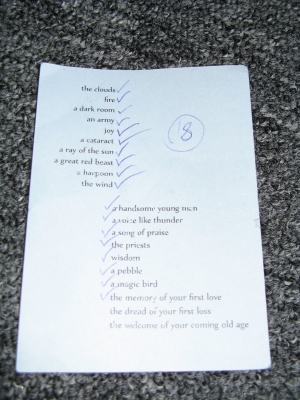 the clouds
fire
a dark room
an army
joy
a cataract
a ray of the sun
a great red beast
a harpoon
the wind
18
a handsome young man
a voice like thunder
a song of praise
the priests
wisdom
a pebble
a magic bird
the memory of your first love
the dread of your first loss
the welcome of your coming old age